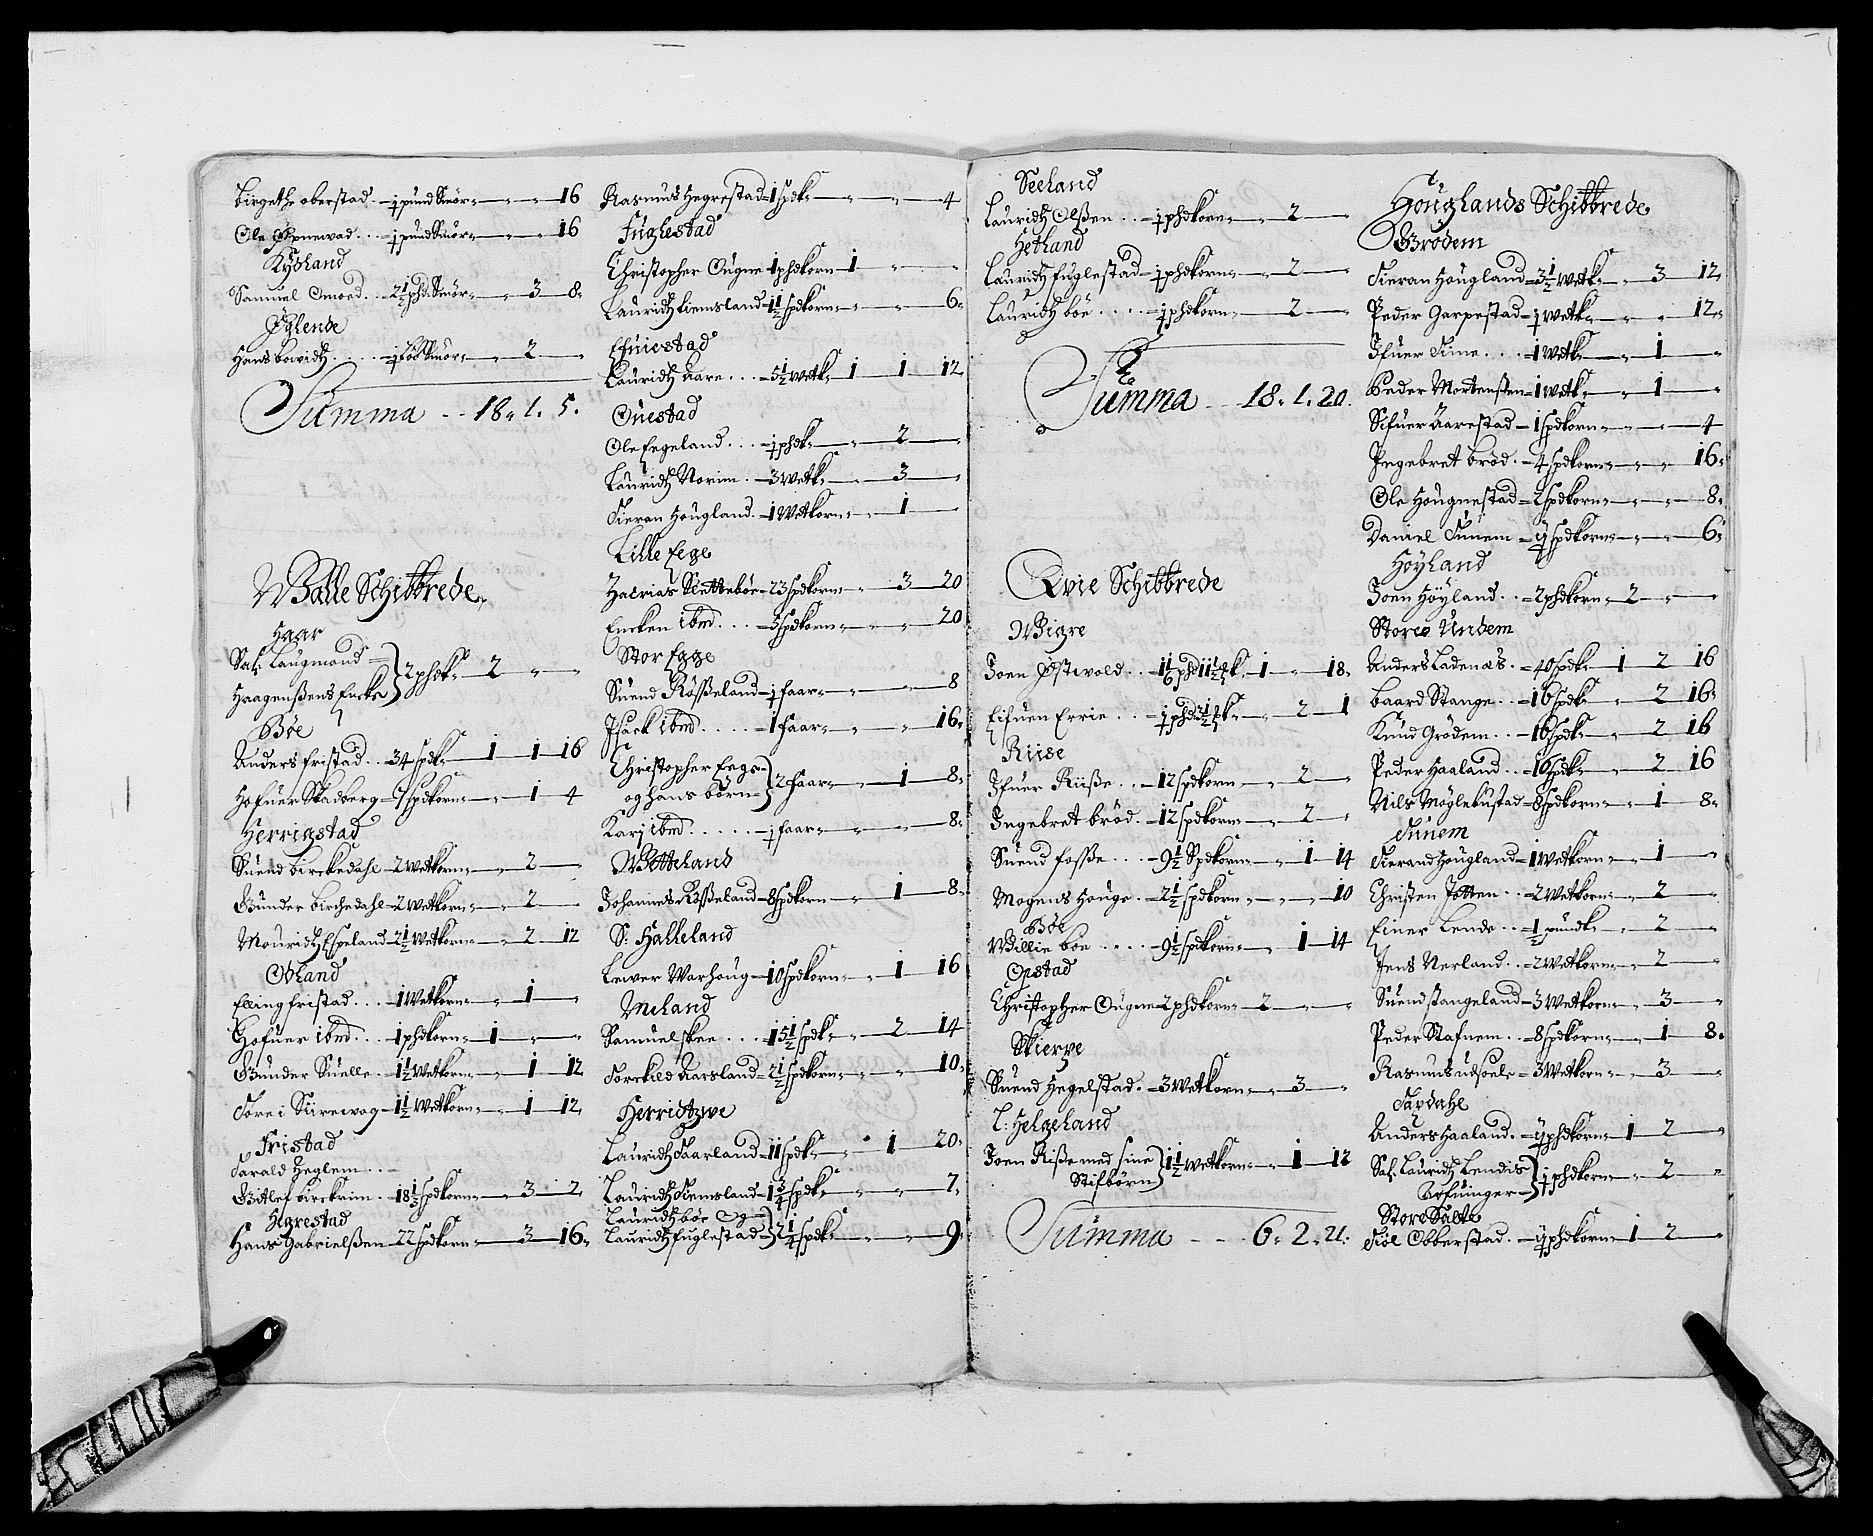 Birgethe oberstad - ½ pund Smör - " - " - 16
Ole Ognewad . . . - ½ pund Smör - " - " - 16
Kydland
Samuel Omoed . . - 2½ phd: Smör - " - 3 - 8
Eglende
Hans bowidtz . . . - ½ föb Smör - " - 2 -
Summa - - 18. 1. 5.
Walle Schibbrede
Haar
Sal: Laugmand
Haagenßens Encke } 2 phdk - 2 " "
Böe
Anders fristad . . 34 spdk - 1 - 1 - 16
Hofuer Skadberg - 7 spdkorn - " - 1 - 4
Herrigstad
Suend birckedahl - 2 wetkorn - " - 2 -
Gunder birchedahl - 2 wetkorn - " - 2 -
Mouridtz Espeland - 2½ wetkorn - " - 2 - 12
Obland
Elling fristad . . . - 1 wetkorn - " - 1 - "
Hofuer ibmd . . . - 1 phdkorn - 1 - " - "
Gunder Suelle . . - 1½ wetkorn - " - 1 - 12
Tore i Siirewog - 1½ wetkorn - " - 1 - 12
Fristad
Tarald Heglem . . -
Gatlef birckrim . 18⅓ spdkorn - " - 3 - 2
Hegrestad
Hans Gabrielßen - 22 spdkorn - 3 - 16
Rasmus Hegrestad - 1 spdk - " - " - 4
Fuglestad
Christopher Ougne - 1 phdkorn - 1 - " - "
Lauridtz tiemsland - 1½ spdkorn - " - " - 6
Efuiestad
Lauridtz Aare . . . - 5½ wetk - 1 - 1 - 12
Ouestad
Ole Eegeland . . . - ½ phdk - " - 2 - "
Lauridtz Norim . . - 3 wetk - " - 3 - "
Tieran Hougland . - 1 Wetkorn - " - 1 -
Lille Eege
Zacrias Sletteböe - 23 spdkorn - " - 3 - 20
Encken ibmd . . . - 5 spdkorn - " - " - 20
Stor Egge
Suend Rößeland - ½ faar - " - " - 8
Jsack ibmd . . . . . - 1 faar - " - " - 16
Christopher Eege
og hans börn } 2 faar - " - 1 - 8
Karj ibmd . . . . . - ½ faar - " - " - 8
Wetteland
Johannes Rößeland - 8 spdkorn - " - 1 - 8
S: Halleland
Lewer Warhoug - 10 spdkorn - " - 1 - 16
Meland
Samuel skee . . . - 15½ spdk - " - 2 - 14
Torckild Aarsland - 2½ spdkorn - " - " - 10
Herridtzwe
Lauridtz Saarland - 11 spdk - " - 1 - 20
Lauridtz Tiemsland - 1¾ spdk - " - " - 7
Lauridtz böe Og
Lauridtz fuglestad } 2¼ spdk - " - " - 9
Seeland
Lauridtz Olßen . . . - ½ phdkorn - " - 2 -
Hetland
Lauridtz fuglestad - ½ phdkorn - " - 2 -
Lauridtz böe . . . . - ½ phdkorn - " - 2 -
Summa - - 18. 1. 20.
Qvie Schibbrede
Wigre
Joen Östwold . . - 1⅙ phd 1½ k. 1 - " - 18
Eifuen Errie . . . - ½ phd 3½ k - " - 2 - 1
Riise
Jfuer Riiße . . . - 12 spdkorn - " - 2 -
Ingebret bröd . - 12 spdkorn - " - 2 -
Suend foße . . . . - 9½ Spdkorn - " - 1 - 14
Mogens Houge . - 2½ spdkorn - " - " - 10
Böe
Willie böe . . . . . - 9½ spdkorn - " - 1 - 14
Opstad
Christopher Ougne - 2 phdkorn - 2 - " - "
Skierpe
Suend Hegelstad . - 3 wetkorn - " - 3 - "
L: Helgeland
Joen Riße med sine
Stifbörn } 1½ wetkorn - " - 1 - 12
Summa - - - 6. 2. 21.
Houglands Schibbrede
Grödem
Tieran Hougland - 3½ wetk - " - 3 - 12
Peder Garpestad - ½ wetk - " - " - 12
Jfuer Time . . . - 1 wetk - " - 1 - "
Peder Mortenßen - 1 wetk - " - 1 - "
Sifuer Aarestad - 1 spdkorn - " - " - 4
Ingebret bröd . - 4 spdkorn - " - " - 16
Ole Hougnestad - 2 spdkorn - " - " - 8
Daniel Tunem - 1½ spdkorn - " - " - 6
Höyland
Joen Höyland . . - 2 phdkorn - 2 - " - "
Store Undem
Anders Ladenæs . - 40 spdk - 1 - 2 - 16
Baard Stange . . - 16 spdk - " - 2 - 16
Knud Grödem . . - 16 spdk - " - 2 - 16
Peder Haaland . . - 16 spdk - " - 2 - 16
Nils Möglebustad - 8 spdkorn - " - 1 - 8
Tunem
Tierand Hougland - 1 Wetkorn - " - 1 - "
Christen Jotten . . - 2 wetkorn - " - 2 - "
Einer Lende . . - ½ pundk - " - 2 - "
Jens Nerland . . - 2 wetkorn - " - 2 - "
Suend stangeland - 3 wetkorn - " - 3 - "
Peder Stafnem . - 8 spdkorn - " - 1 - 8
Rasmus udsole - 3 wetkorn - " - 3 - "
Taxdahl
Anders Haaland . - 1½ phdkorn - 1 - 2 - "
Sal: Lauridtz Lendis
Arfuinger } ½ phdkorn - " - 2 - "
Store Salte
Tiöl Obberstad . - 1½ phdkorn - 1 - 2 - "